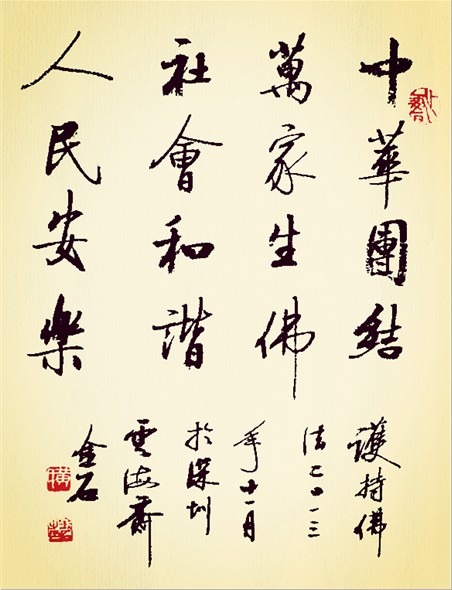 中華團結
萬家生佛
社會和諧
人民安樂
護持佛
法二〇一三
年十一月
於深圳
雲海齋
金石